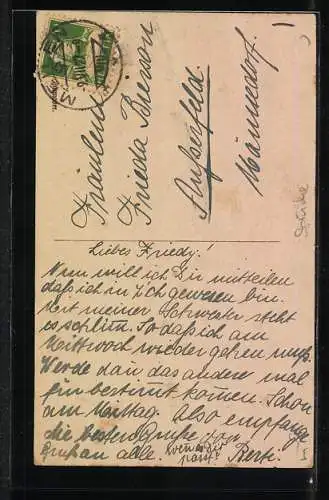 Fräulein
Frieda
Aufserfeld
Männedorf.
Liebes Friedy!
Nun will ich Dir mitteilen
daß ich in Zch gewesen bin.
Mit meiner Schwester steht
es schlim. So daß ich am
Mittwoch wieder gehen muß.
Werde dan das andere mal
für bestimt komen. Schon
am Mittag. Also empfange
die besten Grüße von
Gruß an alle. Berti.